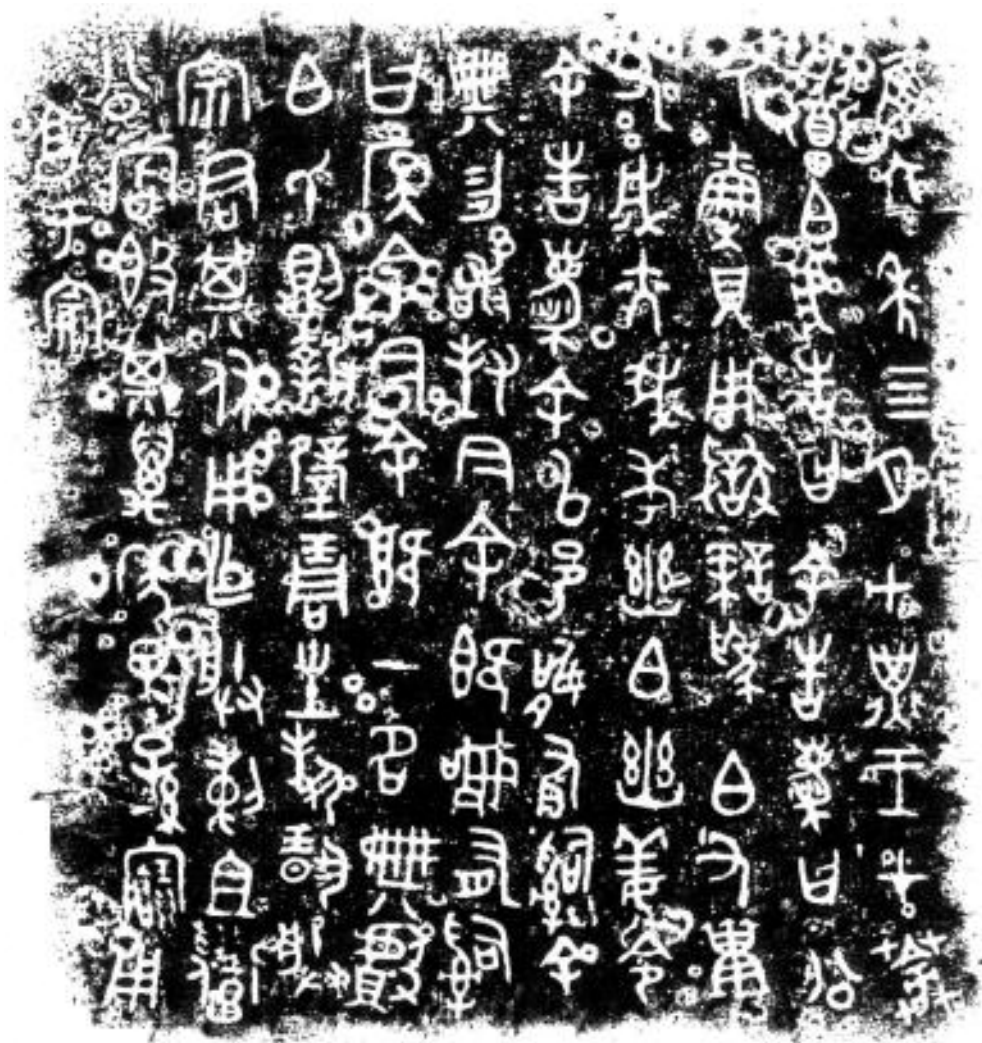 隹六年四月甲子王才𦮘
召白虎告曰余告慶曰公
厥稟貝用獄諫爲白又祗
又成亦我考幽白幽姜令
余告慶余以邑訊有𤔲余
典勿敢封今余既訊有𤔲
曰戾令今余既一名典獻
白氏則報璧琱生對揚朕
宗君其休用乍朕剌且召
公嘗𣪘其萬年子孫寶用
享于宗